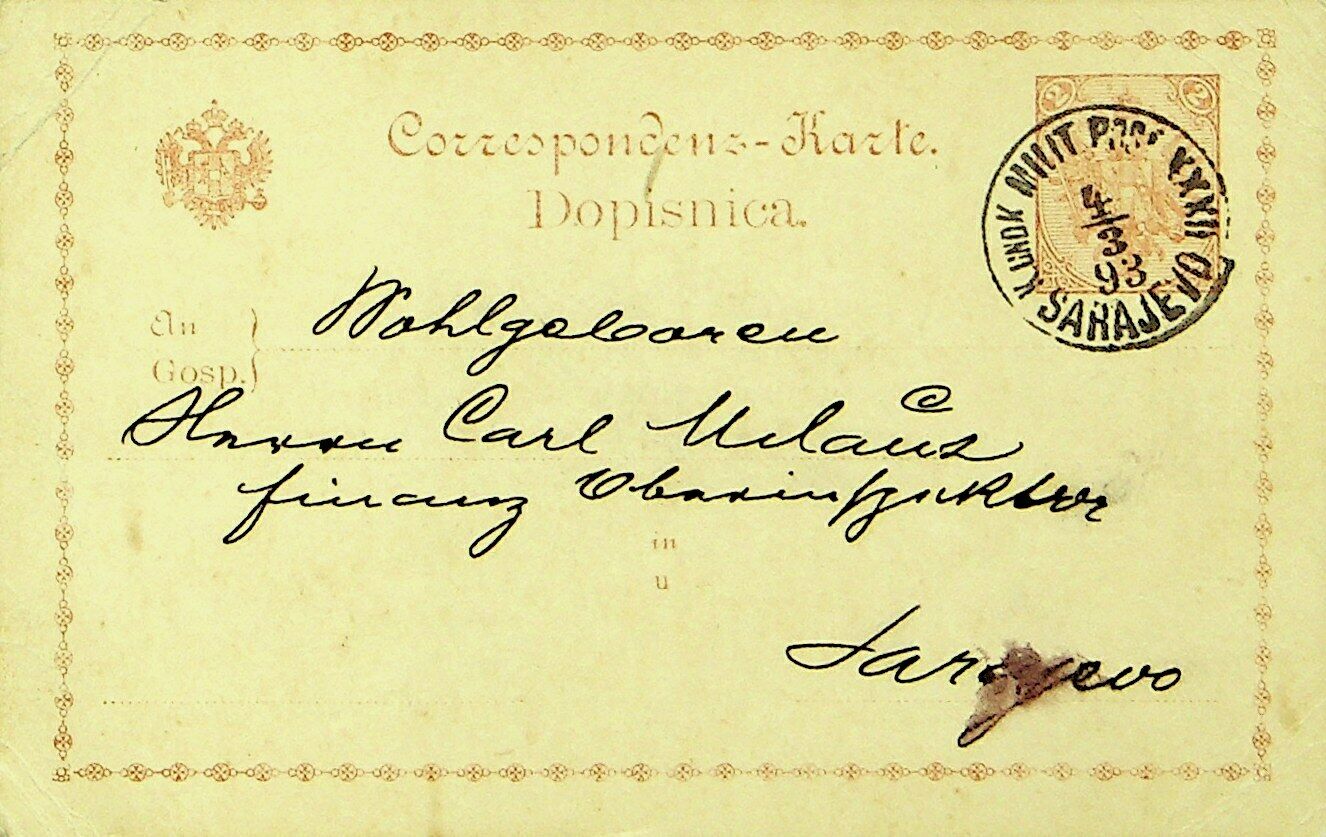 Correspondenz-Karte.
Dopisnica.
2 2
K. UND K. MILIT. POST XXXII
4/3
93
SARAJEVO
An
Gosp.
Wohlgeboren
Herrn Carl
Finanz Oberinspektor
in
u
Sarajevo